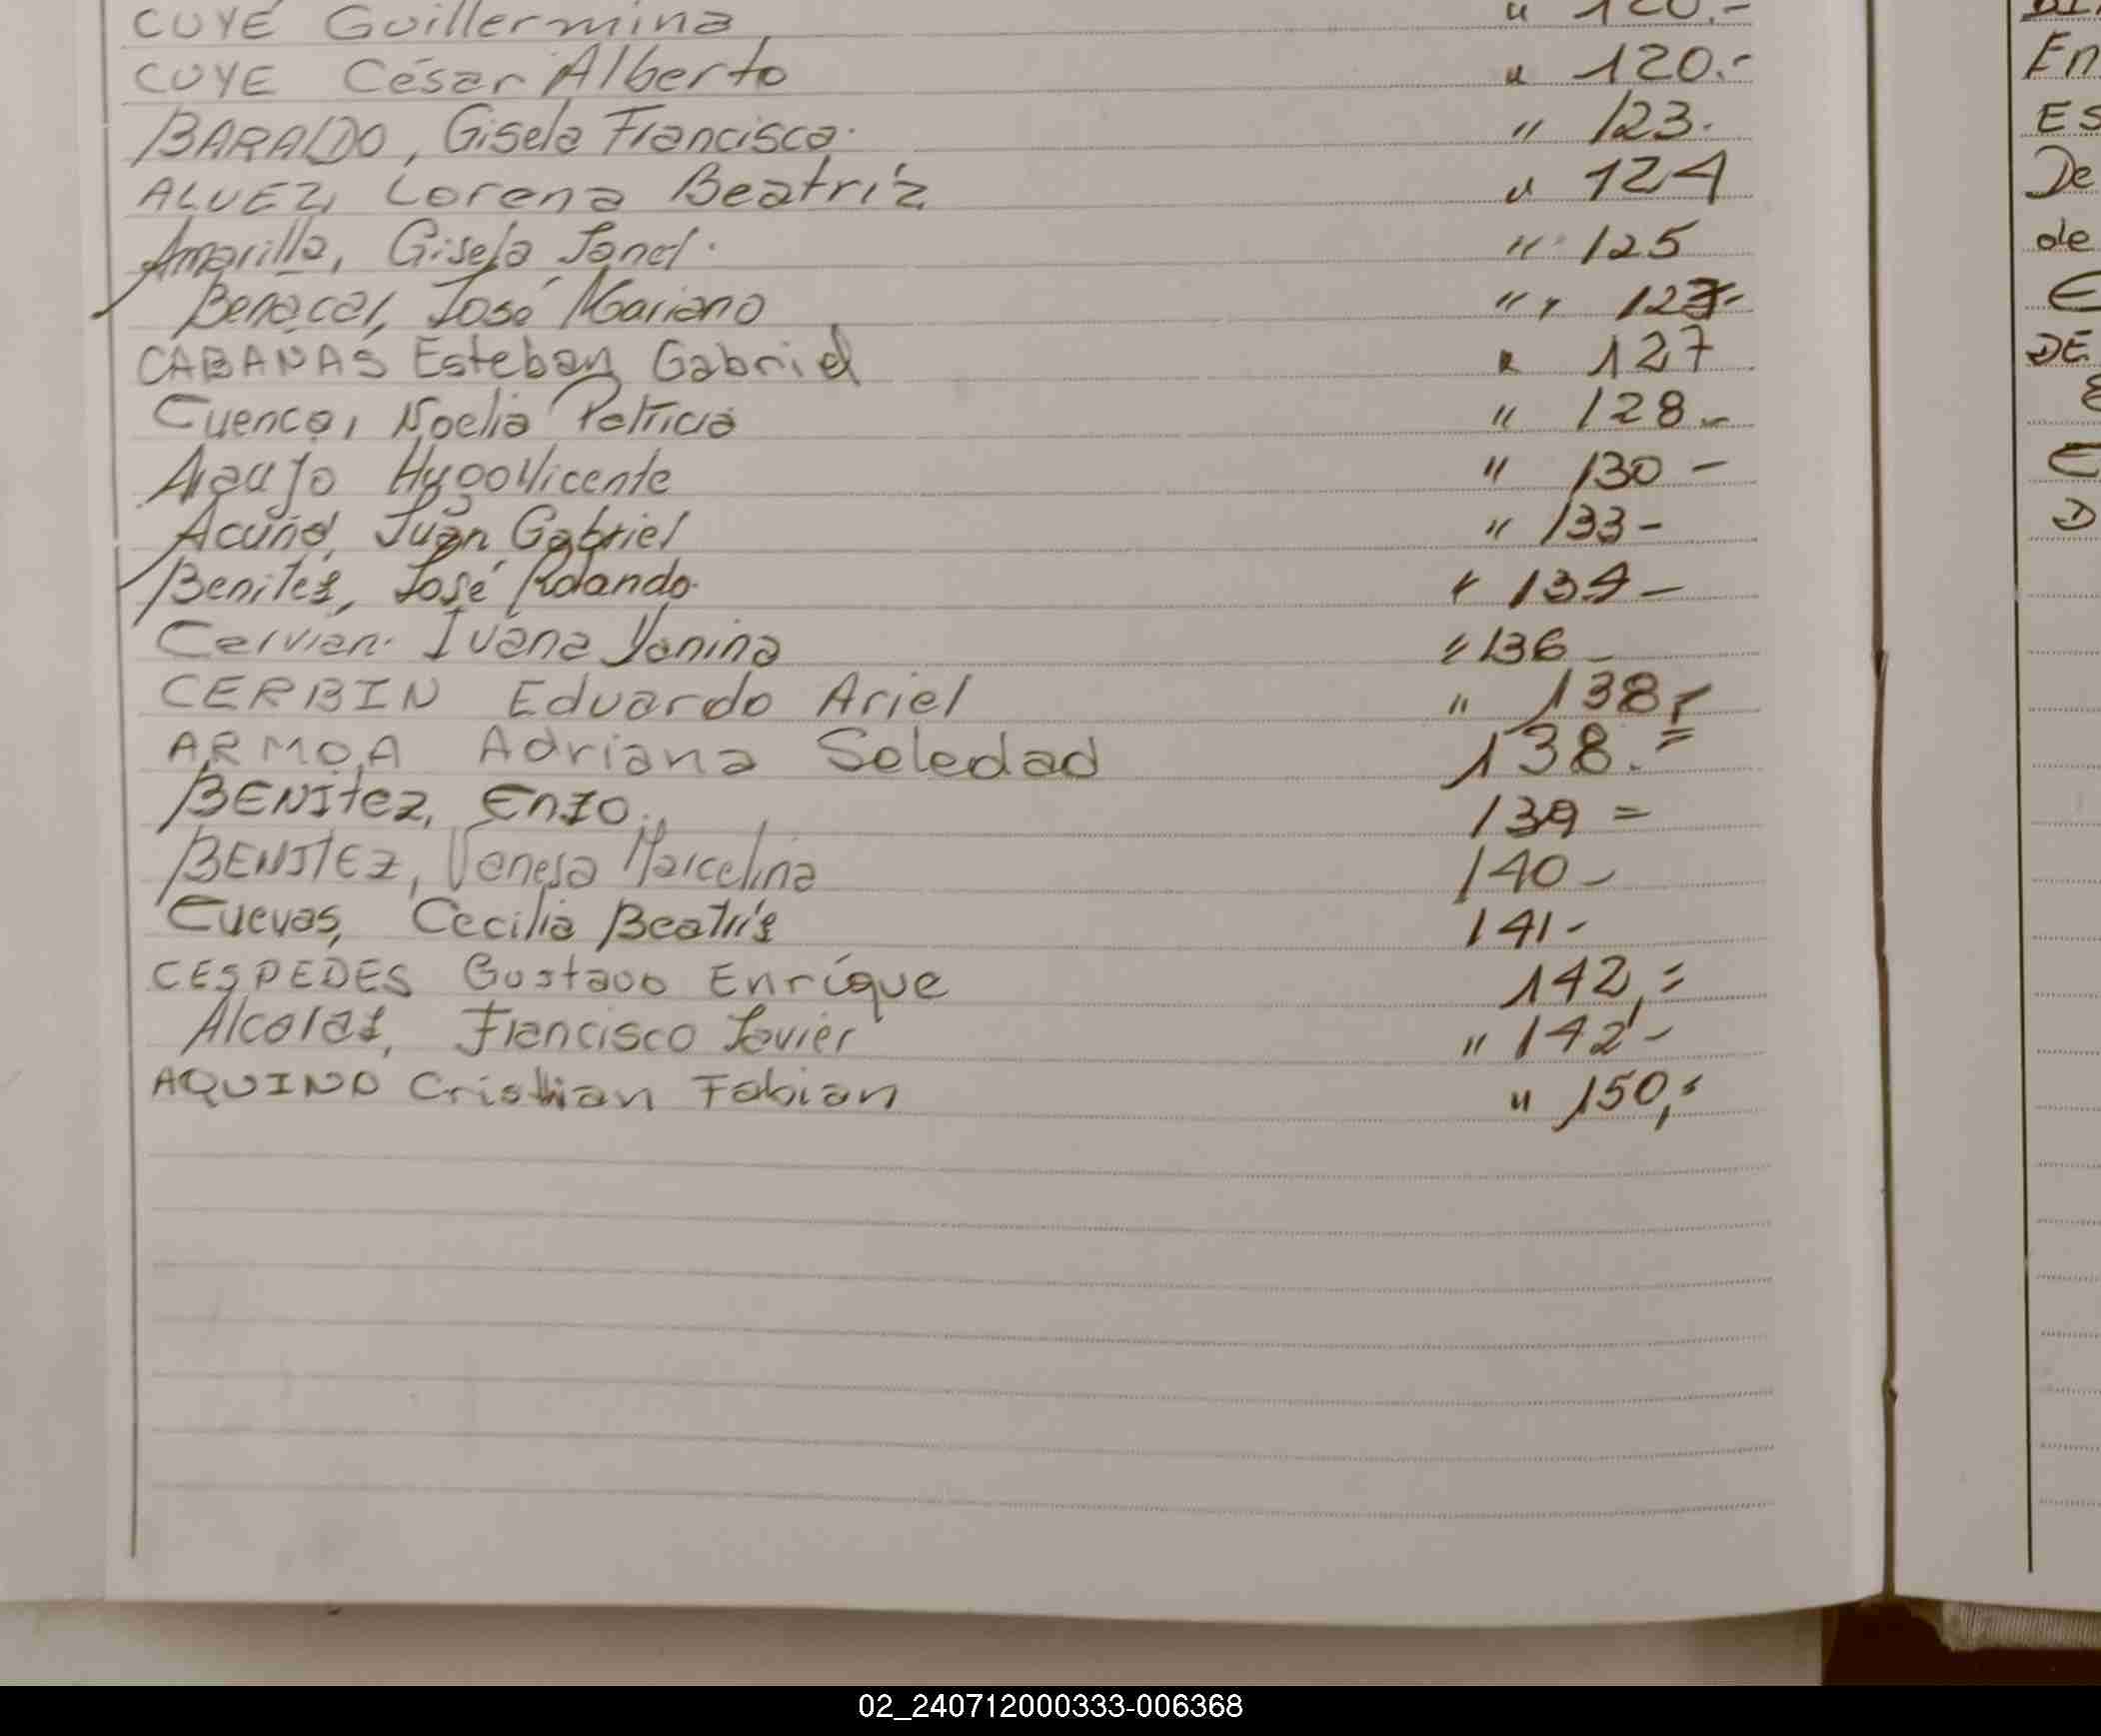 CUYÉ Guillermina " 120.-
CUYE César Alberto " 120.-
BARALDO, Gisela Francisca. " 123.
ALVEZ, Lorena Beatriz " 124
Amarilla, Gisela Janel. " 125
Benacal, José Mariano "" 127-
CABANAS Esteban Gabriel " 127
Cuenca, Noelia Patricia " 128-
Araujo Hugo Vicente " 130 -
Acuña, Juan Gabriel " 133-
Benites, José Rolando. " 134-
Cervian. Ivana Yanina " 136 -
CERBIN Eduardo Ariel " 138,-
ARMOA Adriana Soledad 138.=
BENItez, Enzo. 139 =
BENITEZ, Vanesa Marcelina 140-
Cuevas, Cecilia Beatrís 141-
CESPEDES Gustavo Enríque 142,=
Alcaras, Francisco Javier " 142-
AQUINO Cristhian Fabian " 150,=
En
ES
De
de
E
DE
E
D
02_240712000333-006368